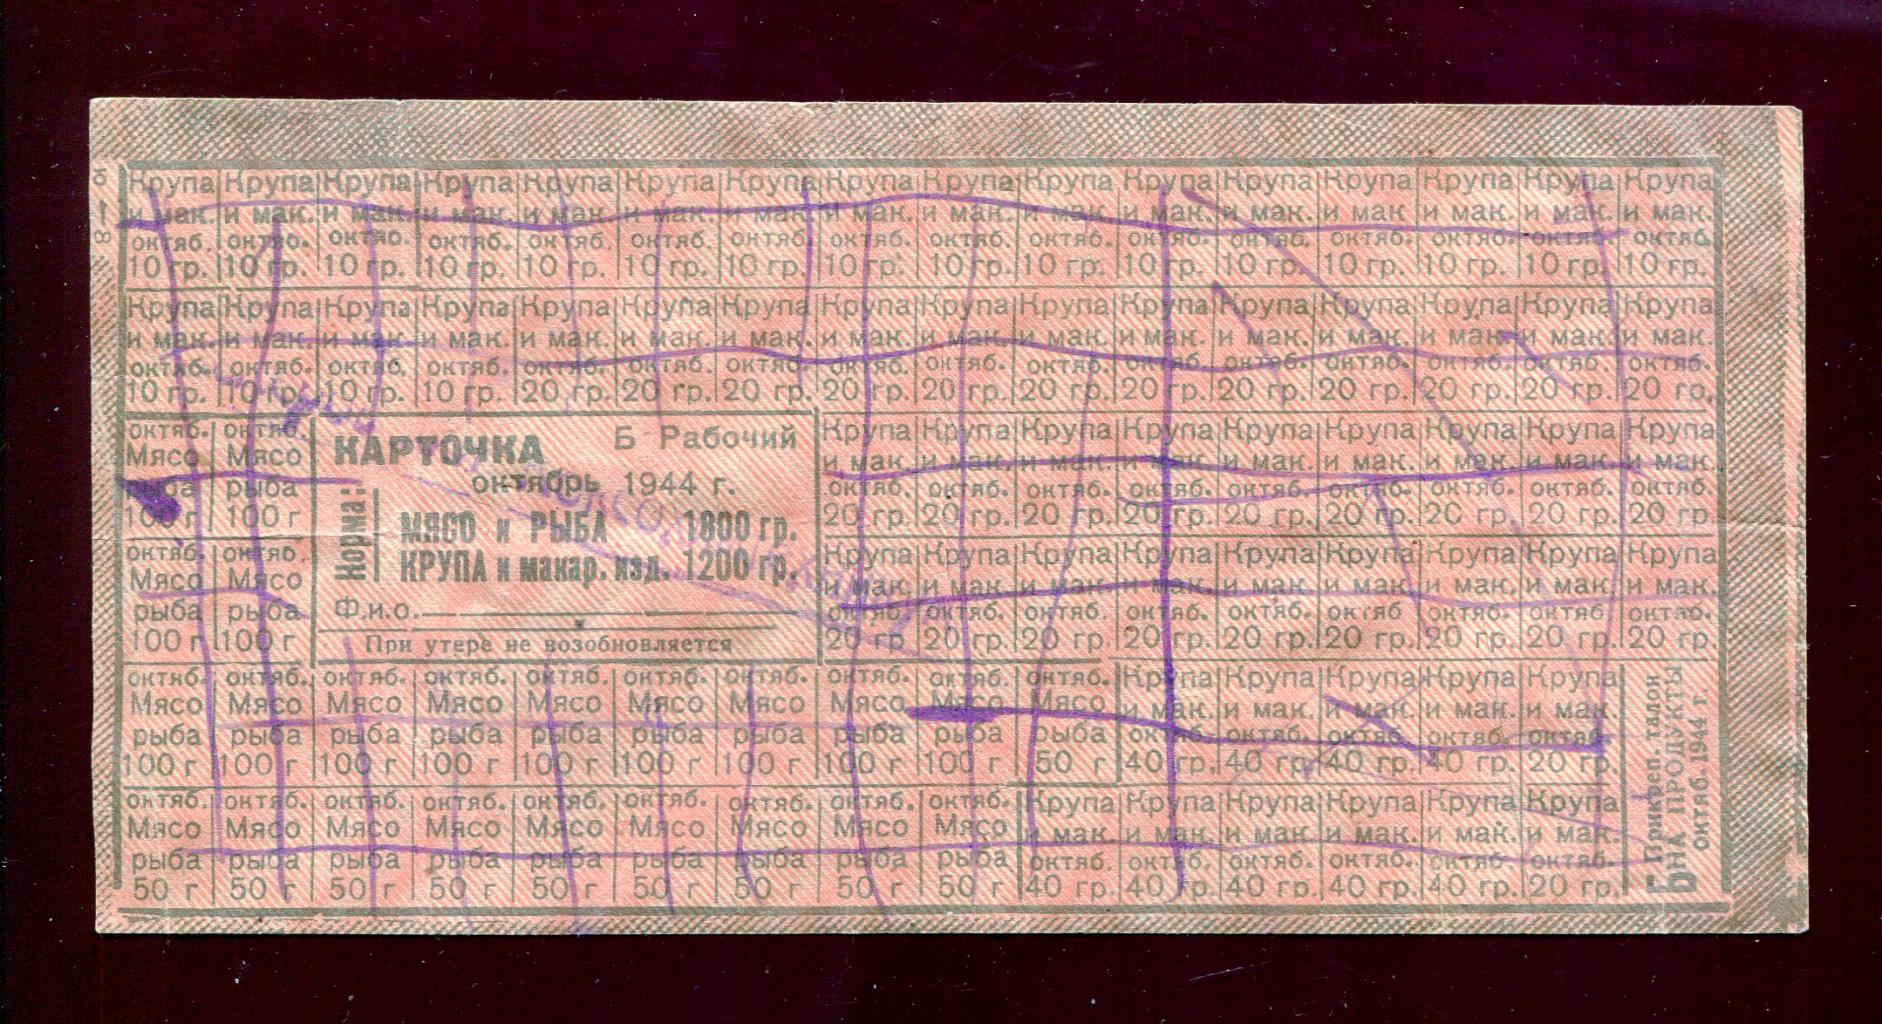 Крупа Крупа Крупа Крупа Крупа Крупа Крупа Крупа Крупа Крупа Крупа Крупа Крупа Крупа Крупа Крупа
и мак. и мак. и мак. и мак. и мак. и мак. и мак. и мак. и мак. и мак. и мак. и мак. и мак. и мак. и мак. и мак.
октяб. октяб. октяб. октяб. октяб. октяб. октяб. октяб. октяб. октяб. октяб. октяб. октяб. октяб. октяб. октяб.
10 гр. 10 гр. 10 гр. 10 гр. 10 гр. 10 гр. 10 гр. 10 гр. 10 гр. 10 гр. 10 гр. 10 гр. 10 гр. 10 гр. 10 гр. 10 гр.
Крупа Крупа Крупа Крупа Крупа Крупа Крупа Крупа Крупа Крупа Крупа Крупа Крупа Крупа Крупа Крупа
и мак. и мак. и мак. и мак. и мак. и мак. и мак. и мак. и мак. и мак. и мак. и мак. и мак. и мак. и мак. и мак.
октяб. октяб. октяб. октяб. октяб. октяб. октяб. октяб. октяб. октяб. октяб. октяб. октяб. октяб. октяб. октяб.
10 гр. 10 гр. 10 гр. 10 гр. 20 гр. 20 гр. 20 гр. 20 гр. 20 гр. 20 гр. 20 гр. 20 гр. 20 гр. 20 гр. 20 гр. 20 гр.
октяб. октяб.
Мясо Мясо
рыба рыба
100 г 100 г
октяб. октяб.
Мясо Мясо
рыба рыба
100 г 100 г
КАРТОЧКА Б Рабочий
октябрь 1944 г.
Норма:
МЯСО и РЫБА 1800 гр.
КРУПА и макар. изд. 1200 гр.
Ф.и.о.
При утере не возобновляется
Крупа Крупа Крупа Крупа Крупа Крупа Крупа Крупа Крупа
и мак. и мак. и мак. и мак. и мак. и мак. и мак. и мак. и мак.
октяб. октяб. октяб. октяб. октяб. октяб. октяб. октяб. октяб.
20 гр. 20 гр. 20 гр. 20 гр. 20 гр. 20 гр. 20 гр. 20 гр. 20 гр.
Крупа Крупа Крупа Крупа Крупа Крупа Крупа Крупа Крупа
и мак. и мак. и мак. и мак. и мак. и мак. и мак. и мак. и мак.
октяб. октяб. октяб. октяб. октяб. октяб октяб. октяб. октяб.
20 гр 20 гр. 20 гр. 20 гр. 20 гр. 20 гр. 20 гр. 20 гр. 20 гр.
октяб. октяб. октяб. октяб. октяб. октяб. октяб. октяб. октяб. октяб. Крупа Крупа Крупа Крупа Крупа
Мясо Мясо Мясо Мясо Мясо Мясо Мясо Мясо Мясо Мясо и мак. и мак. и мак. и мак. и мак.
рыба рыба рыба рыба рыба рыба рыба рыба рыба рыба октяб. октяб. октяб. октяб. октяб.
100 г 100 г 100 г 100 г 100 г 100 г 100 г 100 г 100 г 50 г 40 гр. 40 гр. 40 гр. 40 гр. 20 гр.
октяб. октяб. октяб. октяб. октяб. октяб. октяб. октяб. октяб. Крупа Крупа Крупа Крупа Крупа Крупа
Мясо Мясо Мясо Мясо Мясо Мясо Мясо Мясо Мясо и мак. и мак. и мак. и мак. и мак. и мак.
рыба рыба рыба рыба рыба рыба рыба рыба рыба октяб. октяб. октяб. октяб. октяб. октяб.
50 г 50 г 50 г 50 г 50 г 50 г 50 г 50 г 50 г 40 гр. 40 гр. 40 гр. 40 гр. 40 гр. 20 гр.
Б Прикреп. талон
НА ПРОДУКТЫ
октяб. 1944 г.